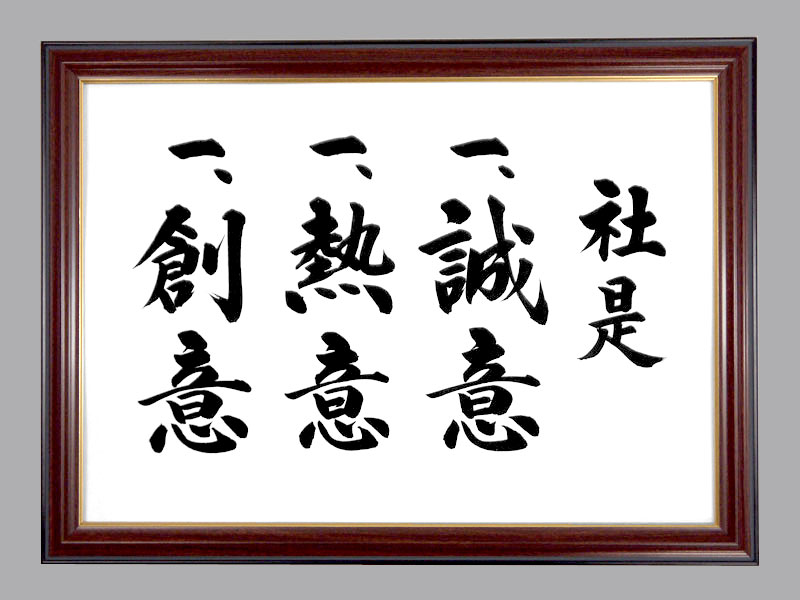 社是
一、誠意
一、熱意
一、創意